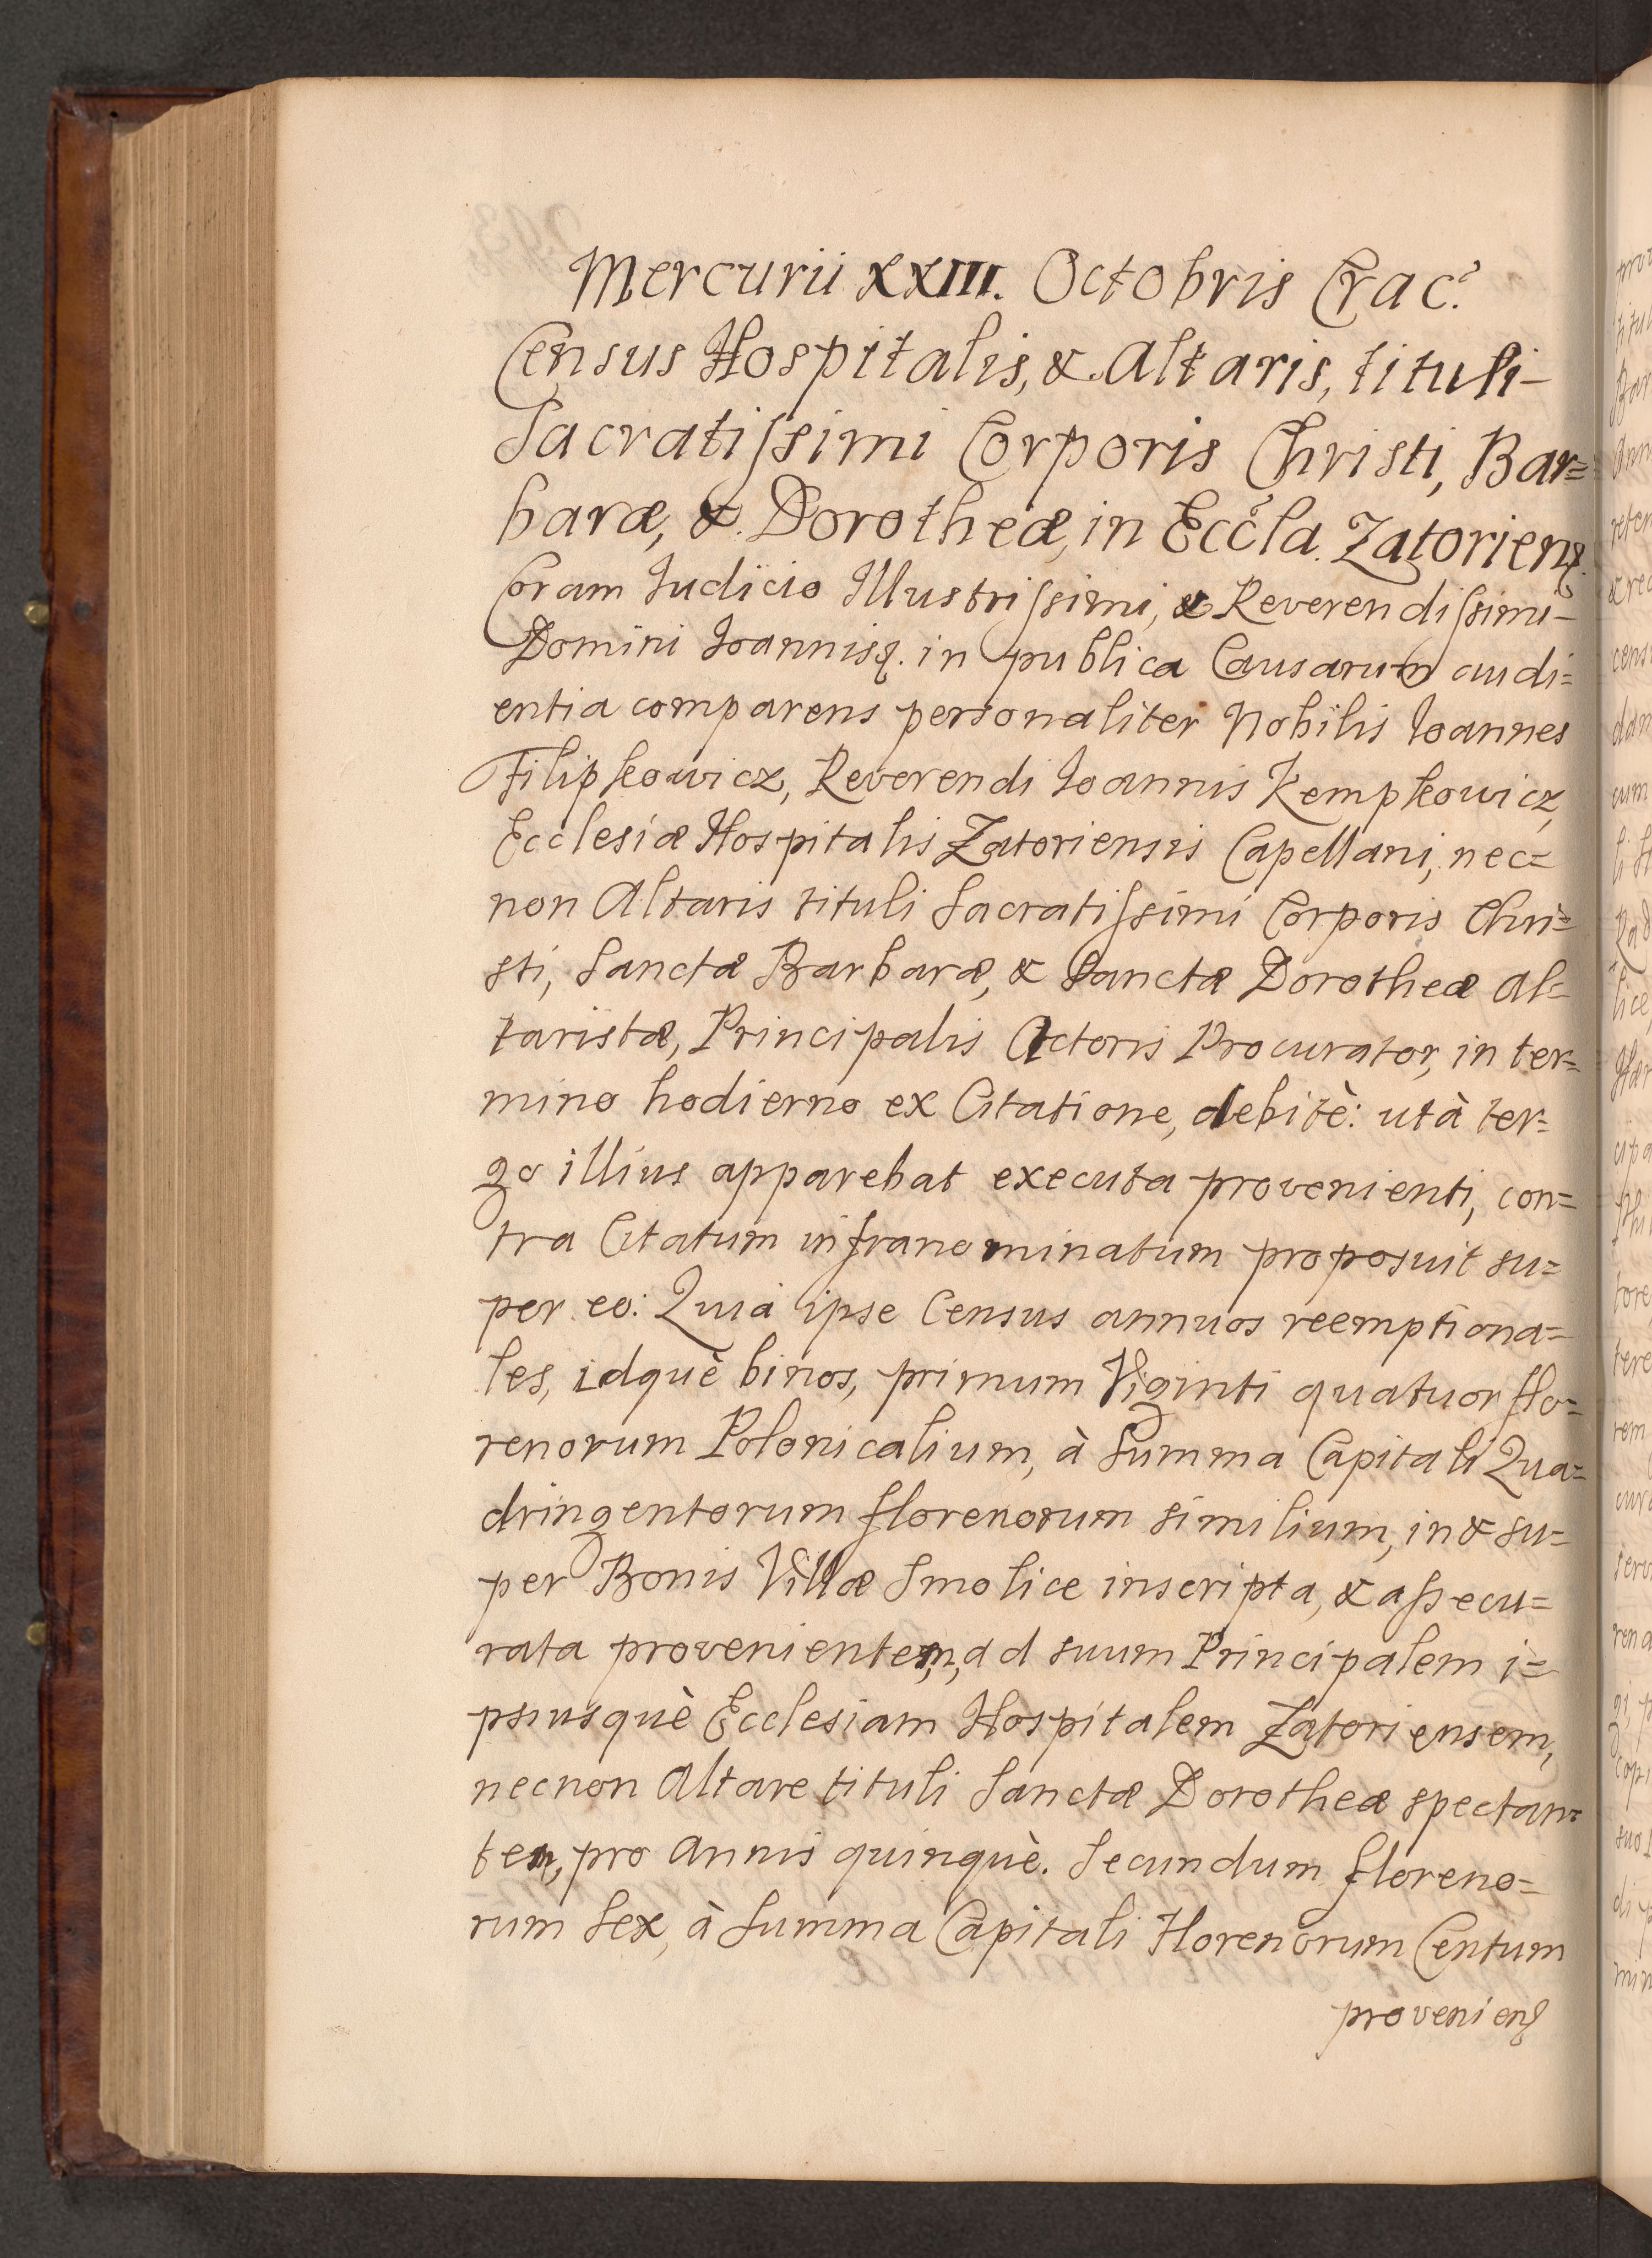 Mercurii XXIII. Octobris Crac.
Census Hospitalis, & Altaris, tituli-
Sacratiſsimi Corporis Christi, Bar=
baræ, & Dorotheæ, in Eccla. Zatorienʒ.
Coram Iudicio Illustriſsimi, & Reverendiſsimi-
Domini Ioannisꝫ. in publica Causarum audi=
entia comparens personaliter Nobilis Ioannes
Filipkowicz, Reverendi Ioannis Kempkowicz,
Ecclesiæ Hospitalis Zatoriensis Capellani, nec=
non Altaris tituli Sacratiſsimi Corporis Chri=
sti, Sanctæ Barbaræ, & Sanctæ Dorotheæ Al=
taristæ, Principalis Actoris Procurator, in ter=
mino hodierno ex Citatione, debitè: utà ter=
go illius apparebat executa provenienti, con=
tra Citatum infranominatum proposuit su=
per eo: Quia ipse Census annuos reemptiona=
les, idquè binos, primum Viginti quatuor flo=
renorum Polonicalium, à Summa Capitali Qua=
dringentorum florenorum similium, in & su=
per Bonis Villæ Smolice inscripta, & aſsecu=
rata provenientem, ad suum Principalem i=
psiusquè Ecclesiam Hospitalem Zatoriensem,
necnon Altare tituli Sanctæ Dorotheæ spectan=
tem, pro Annis quinquè. Secundum floreno=
rum Sex, à Summa Capitali Florenorum Centum
provenienʒ